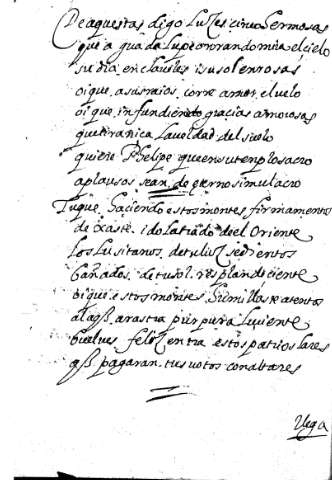 De aquestas digo Luzes cinco hermosas
que a
su dia en claueles i su sol en rosas
oi que, a sus raios, corre amor, el uelo
oi que, infundiendo gracias amorosas
que tiraniça la del suelo
quiere Phelipe que en su templo sacro
aplausos sean, de eterno simulacro
Tu que, haciendo estos montes firmamento
de idolatrado del Oriente
los Lusitanos, de tu luz sedientos
bañados, de tu sol, resplandeciente
oi que estos montes humillaste atentos
al arastra purpura luciente
buelues feliz entra estos patrios lares
pagaran, tus uotos con altares
Vega